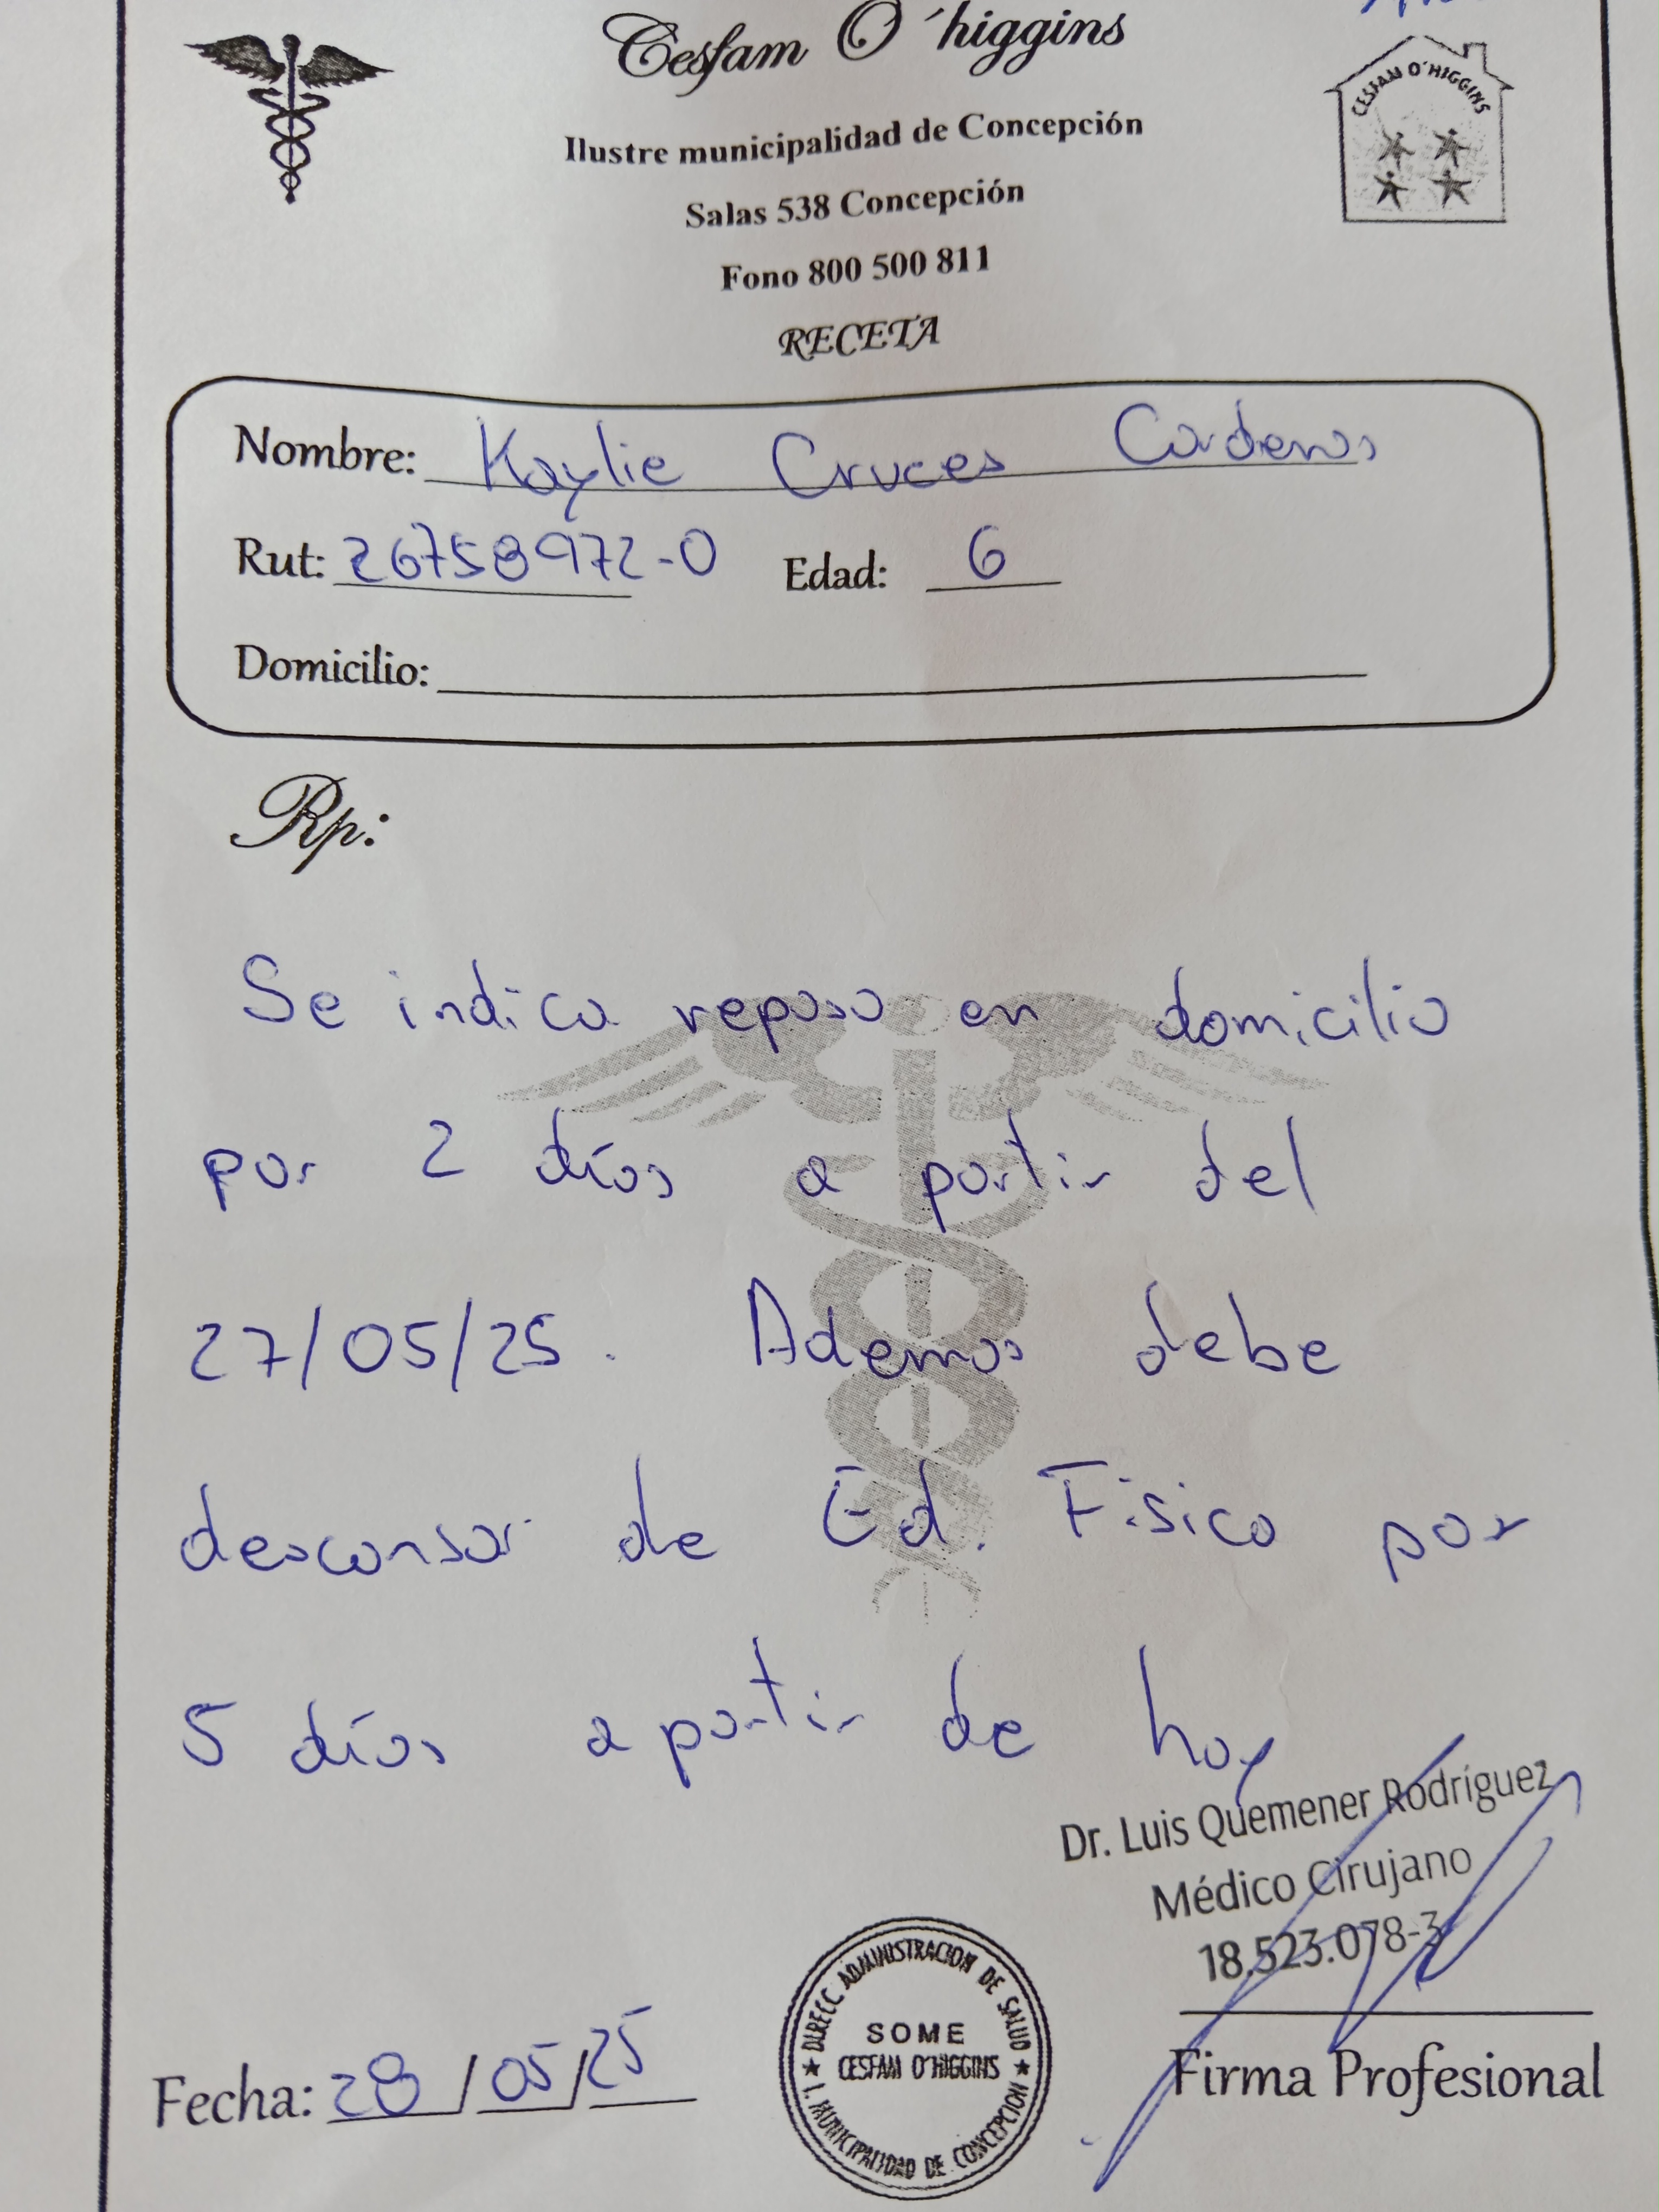 Cesfam O´higgins
CESFAM O´HIGGINS
Ilustre municipalidad de Concepción
Salas 538 Concepción
Fono 800 500 811
RECETA
Nombre: Kaylie Cruces Cardenas
Rut: 26758972-0 Edad: 6
Domicilio:
Rp:
Se indica reposo en domicilio
por 2 días a partir del
27/05/25. Ademas debe
descansar de Ed. Fisica por
5 días a partir de hoy
Dr. Luis Quemener Rodríguez
Médico Cirujano
18.523.078-3
DIRECC ADMINISTRACION DE SALUD
SOME
CESFAM O'HIGGINS
I. MUNICIPALIDAD DE CONCEPCION
Fecha: 28/05/25
Firma Profesional